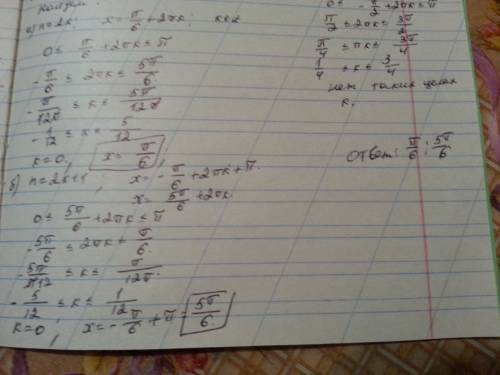 а) n=2k; x = π/6 + 2πk; k∈Z
0 ≤ π/6 + 2πk ≤ π
-π/6 ≤ 2πk ≤ 5π/6
-π/12π ≤ k ≤ 5π/12π
-1/12 ≤ k ≤ 5/12
k=0, x = π/6;
б) n=2k+1, x = -π/6 + 2πk + π.
x = 5π/6 + 2πk.
0 ≤ 5π/6 + 2πk ≤ π
-5π/6 ≤ 2πk ≤ π/6.
-5π/π12 ≤ k ≤ π/12π.
-5/12 ≤ k ≤ 1/12
k=0, x = -π/6 + π = 5π/6.
0 ≤ -π/2 + 2πk ≤ π
π/2 ≤ 2πk ≤ 3π/2
π/4 ≤ πk ≤ 3π/4
1/4 ≤ k ≤ 3/4
нет таких целых
k.
Ответ: π/6; 5π/6